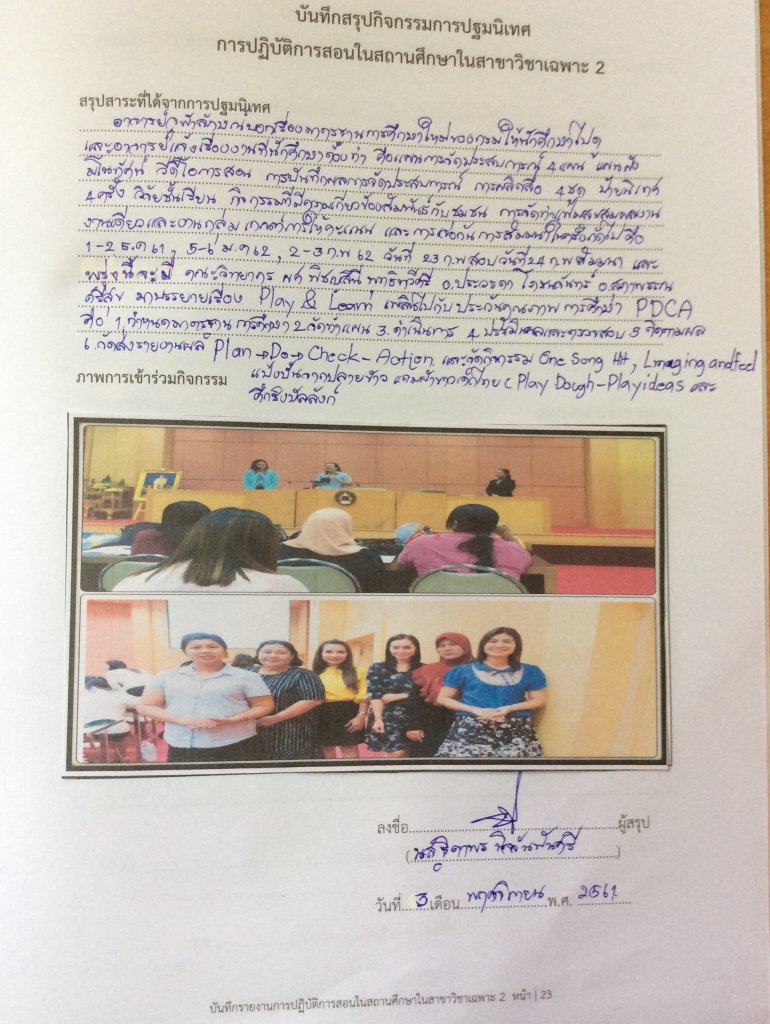 บันทึกสรุปกิจกรรมการปฐมนิเทศ
การปฏิบัติการสอนในสถานศึกษาในสาขาวิชาเฉพาะ 2
สรุปสาระที่ได้จากการปฐมนิเทศ
เรื่องมาตรฐานการศึกษาใหม่ของกรม ให้นักศึกษาไปดู
และอาจารย์แจ้งเรื่องงานที่นักศึกษาต้องทำ คือแผนการจัดประสบการณ์ 4 แผน แผนผัง
มโนทัศน์ วีดีโอการสอน การบันทึกผลการจัดประสบการณ์ การผลิตสื่อ 4 ชุด ป้ายนิเทศ
4 ครั้ง วิจัยชั้นเรียน กิจกรรมที่มีความเกี่ยวข้องสัมพันธ์กับชุมชน การจัดทำแฟ้มสะสมผลงาน
งานเดี่ยวและงานกลุ่ม เกณฑ์การให้คะแนน และการสัมมนาในครั้งถัดไปคือ
1-2 ธ.ค 61, 5-6 ม.ค 62, 2-3 ก.พ 62 วันที่ 23 ก.พ สอบ วันที่ 24 ก.พ สัมมนา และ
พรุ่งนี้จะมี คณะวิทยากร
มาบรรยายเรื่อง Play & Learn เพลินไปกับ ประกันคุณภาพการศึกษา PDCA
คือ 1. กำหนดมาตรฐานการศึกษา 2. จัดทำแผน 3. ดำเนินการ 4. ประเมินผลและตรวจสอบ 5. ติดตามผล
6. จัดส่งรายงานผล Plan→Do→Check-Action และจัดกิจกรรม One Song Hit, Imaging and feel
ภาพการเข้าร่วมกิจกรรม
แป้งปั้นจากปลายข้าว (Play Dough-Play ideas และ
ศึกชิงบัลลังก์
ลงชื่อ ผู้สรุป
วันที่ 3 เดือน พฤศจิกายน พ.ศ. 2561
บันทึกรายงานการปฏิบัติการสอนในสถานศึกษาในสาขาวิชาเฉพาะ 2 หน้า | 23